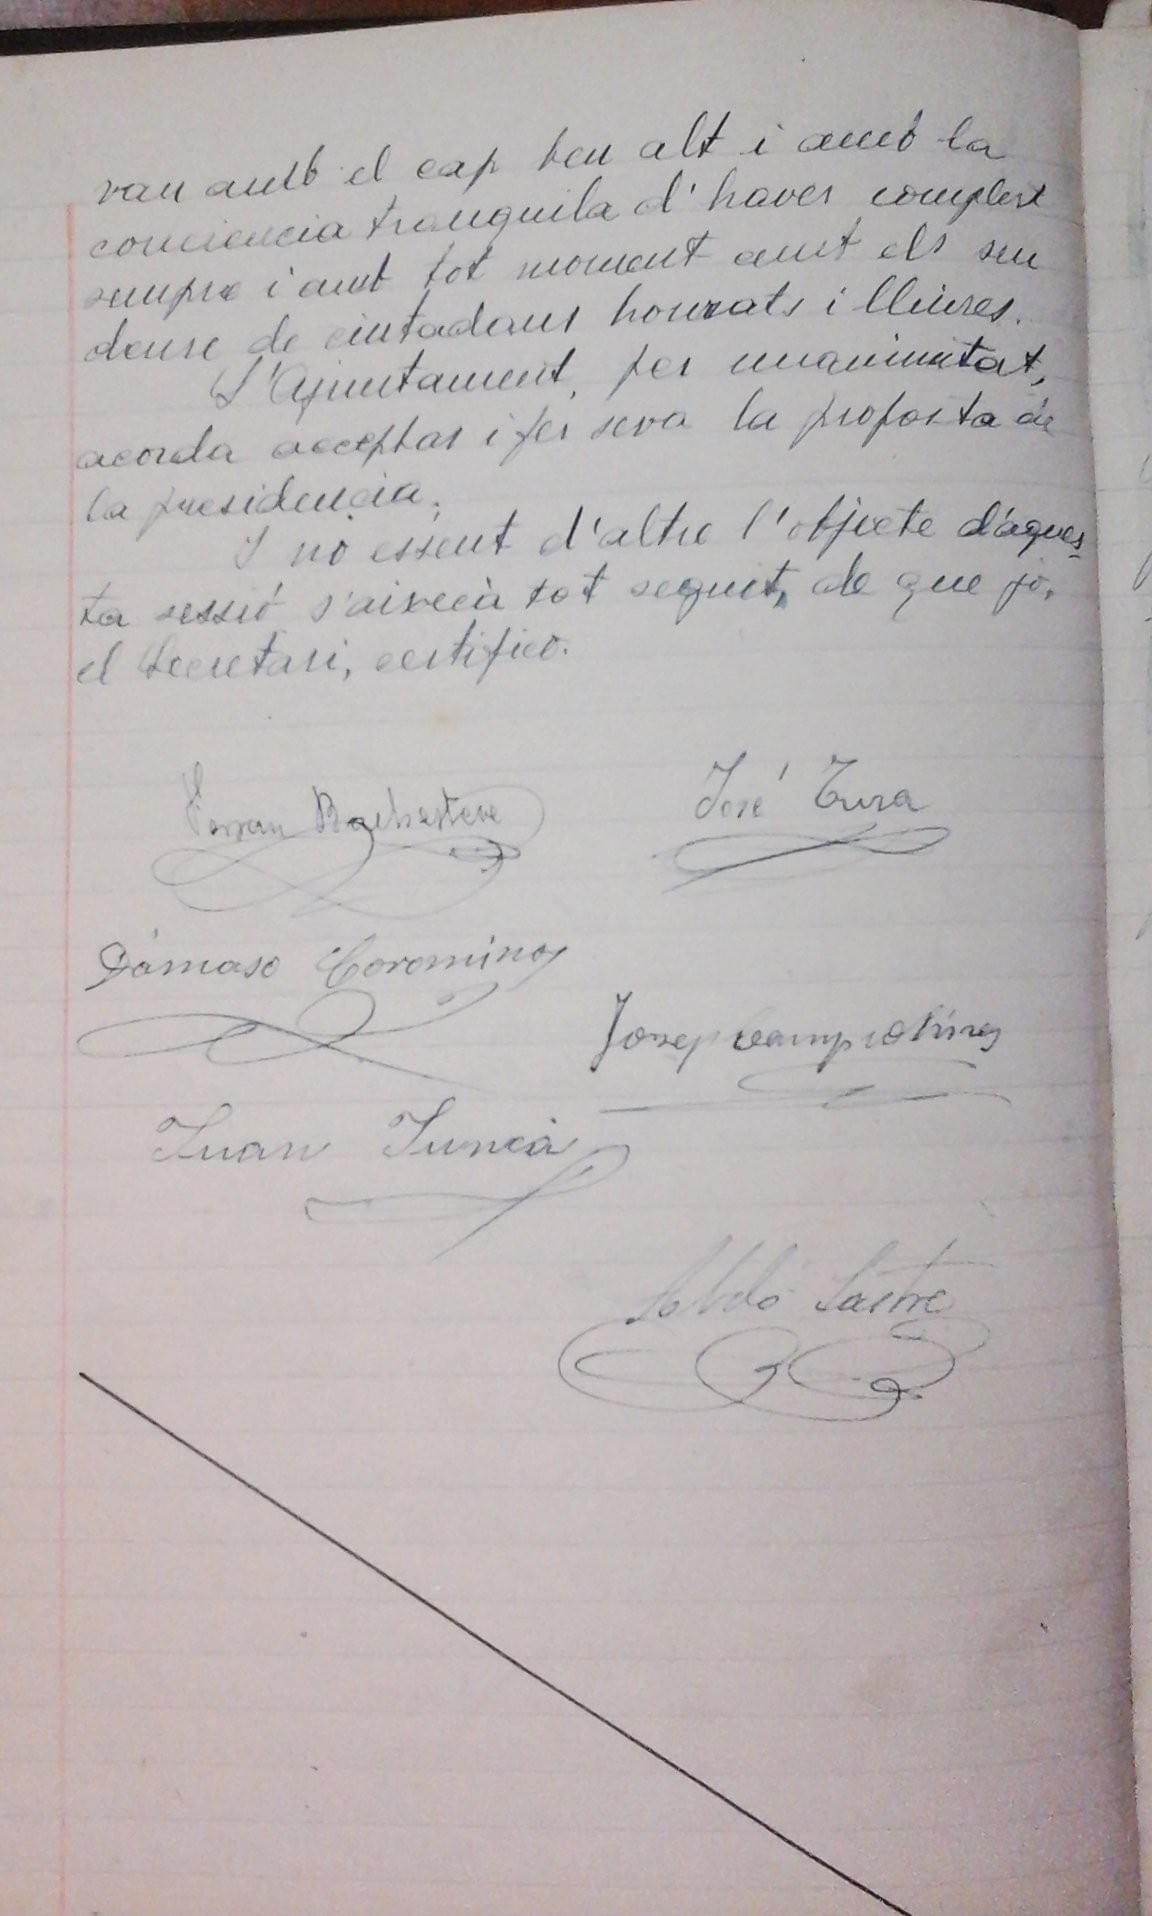 van amb el cap ben alt i amb la
conciencia tranquila d'haver complert
sempre i amb tot moment amb els seu
deure de ciutadans honrats i lliures.
L'Ajuntament, per unanimitat,
acorda acceptar i fer seva la proposta de
la presidencia.
I no essent d'altre l'objecte d'aques-
ta sessió s'aixecà tot seguit, de que jo,
el Secretari, certifico.
Ferran José Tura
Dámaso Corominas
Josep
Juan Juncà
Sastre